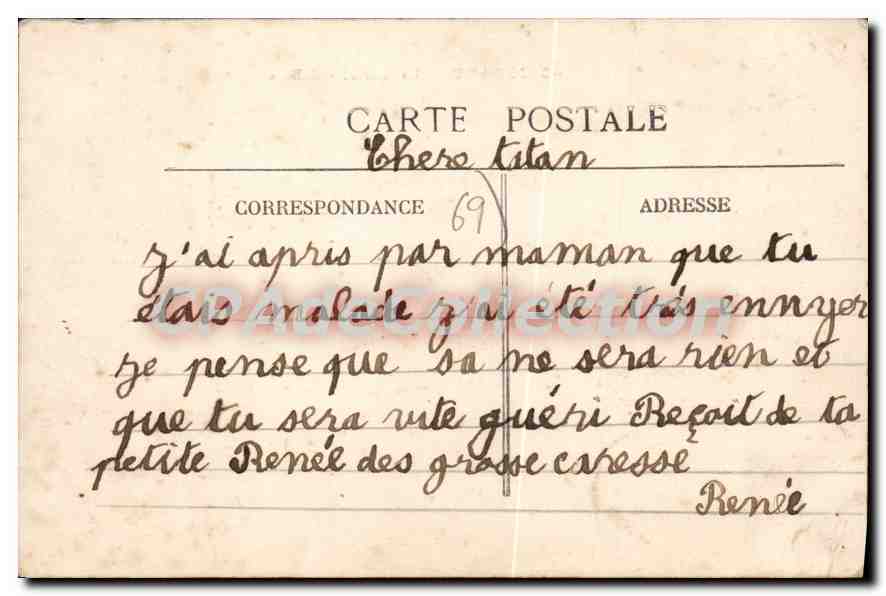 CARTE POSTALE
Chere titan
CORRESPONDANCE
69
ADRESSE
J'ai apris par maman que tu
étais malade j'ai été trés ennyer
je pense que sa ne sera rien et
que tu sera vite guéri Reçoit de ta
petite Renée des grosse caresse
Renée
CPAdeCollection